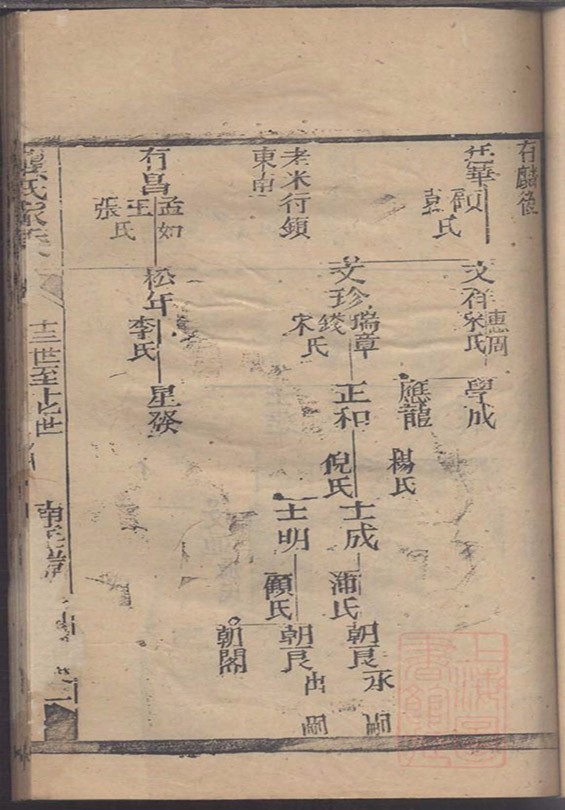 右麟後
華
顧
氏
文祥
惠周
宋氏
學成
應龍
楊氏
文珍
瑞章
錢
宋氏
正和
倪氏
士成
浦氏
朝艮
承
嗣
士明
顧氏
朝艮
出
嗣
朝閣
老米行鎮
東南
有昌
孟如
王
張氏
松年
李氏
星發
氏家
十三世至十七世
南